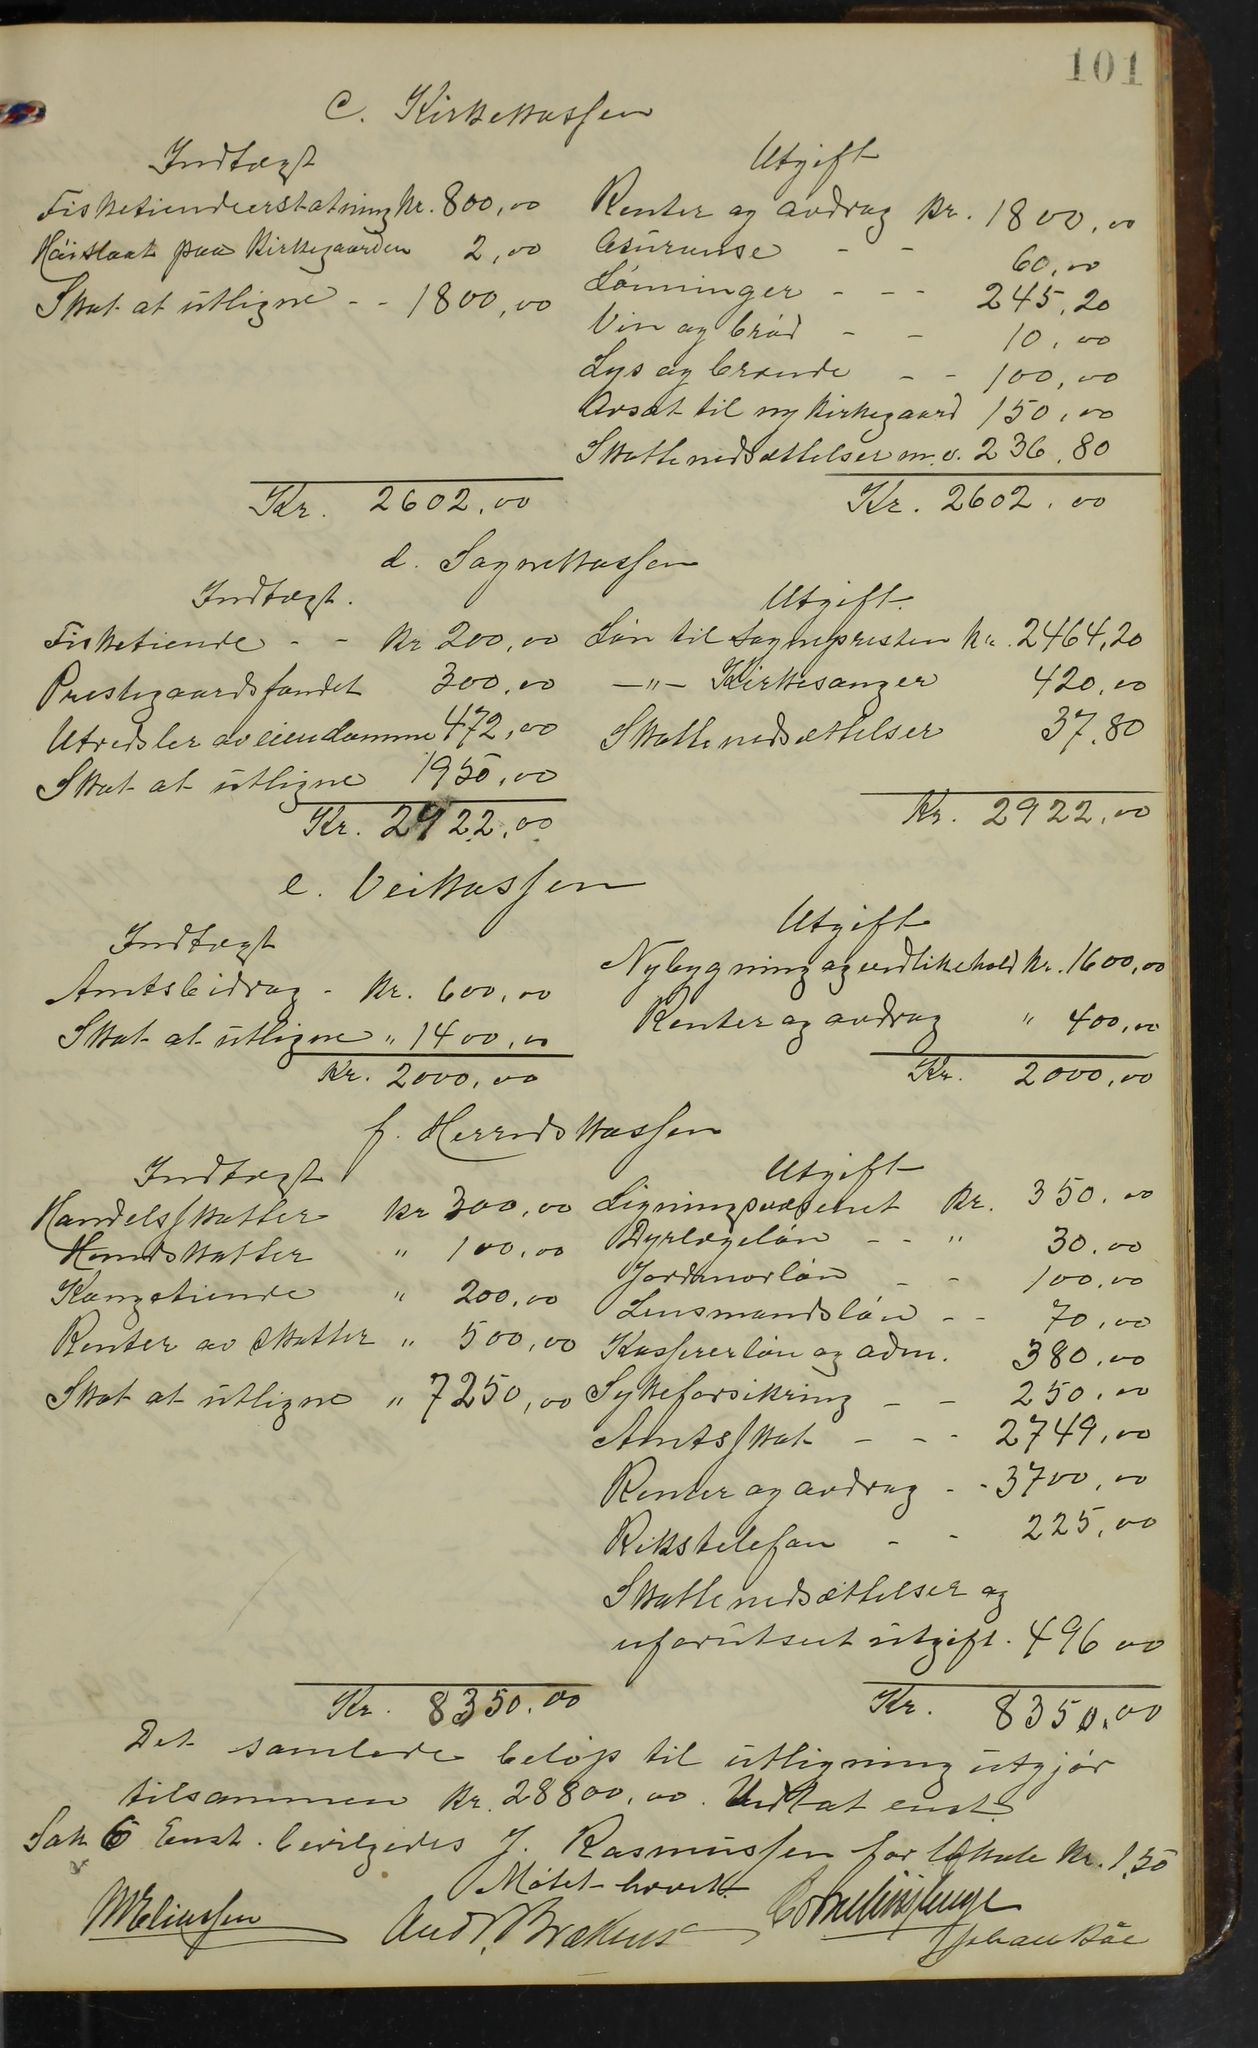 101
C. Kirkekassen
Indtægt
Utgift
Fisketiendeerstatning kr. 800,00
Renter og avdrag kr. 1800,00
Høislaat paa kirkegaarden 2,00
Asuranse - - 60,00
Skat at utligne - - 1800,00
Lønninger - - - 245,20
Vin og brød - - 10,00
Lys og brænde - - 100,00
Avsat til ny kirkegaard 150,00
Skattenedsættelser m.v. 236,80
Kr. 2602,00
Kr. 2602,00
d. Sognekassen
Indtægt.
Utgift.
Fisketiende - - kr 200,00
Løn til sognepresten kr. 2464,20
Prestegaardsfondet 300,00
-"- Kirkesanger 420,00
Utredsler av eiendomme 472,00
Skattenedsættelser 37,80
Skat at utligne 1950,00
Kr. 2922,00
Kr. 2922,00
e. Veikassen
Indtægt
Utgift
Amtsbidrag - kr. 600,00
Nybygning og vedlikehold kr. 1600,00
Skat at utligne " 1400,00
Renter og avdrag " 400,00
Kr. 2000,00
Kr. 2000,00
f. Herredskassen
Indtægt
Utgift
Handelsskatter kr 300,00
Ligningsvæsenet kr. 350,00
Hundskatter " 100,00
Dyrlægeløn - - " 30,00
Kongetiende " 200,00
Jordmorløn - - 100,00
Lensmandsløn - - 70,00
Renter av skatter " 500,00
Kassererløn og adm. 380,00
Skat at utligne " 7250,00
Sykeforsikring - - 250,00
Amtsskat - - - 2749,00
Renter og avdrag - - 3700,00
Rikstelefon - - 225,00
Skattenedsættelser og
uforutseet utgift. 496 00
Kr. 8350,00
Kr. 8350,00
Det samlede beløp til utligning utgjør
tilsammen kr. 28800,00. Vedtat enst.
Sak 6 Enst. bevilgedes J. Rasmussen for lokale kr. 1,50
Møtet hævet.
M Eliassen And. Brækkus Cornelius
Johan Bäe